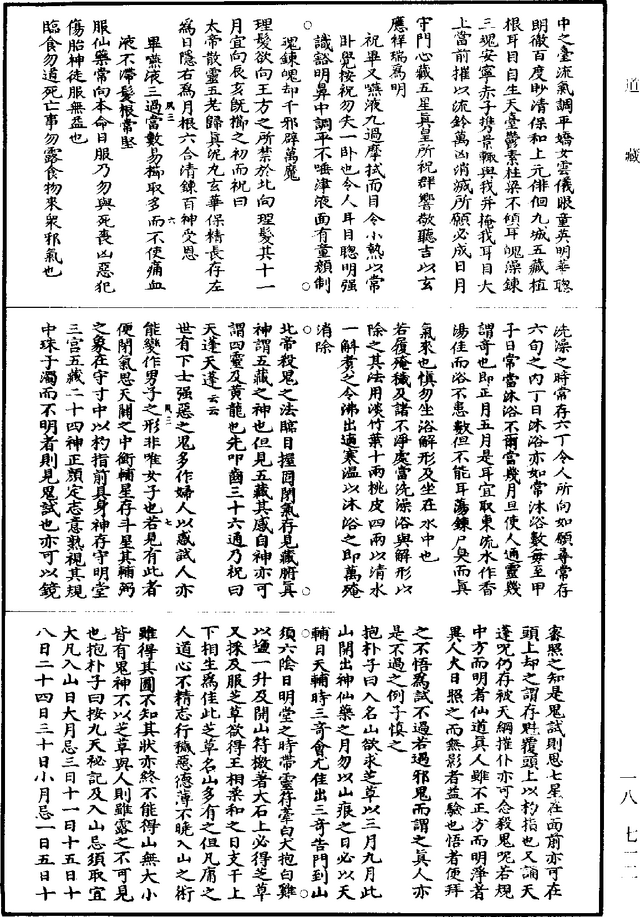 道藏
一八　七一二
中之臺流氣調平嬌女雲儀眼童英明華聰
明徹百度眇清保和上元徘徊九城五藏植
根耳目自生天臺鬱素柱梁不傾耳魄澡鍊
三魂安寧赤子攜景輒與我幷掩我耳目大
上當前摧以流鈴萬凶消滅所願必成日月
守門心藏五星真皇所祝群響敬聽吉以玄
應祥瑞為明
祝畢又嚥液九過摩拭面目令小熱以為常
卧覺按祝勿失一卧也令人耳目聰明強
識谿明鼻中調平不唾津液面有童顏制
魂鍊魄却千邪辟萬魔
理髮欲向王方之所禁於北向理髮其十一
月宜向辰亥旣櫛之初而祝曰
太帝散靈五老歸真泥丸玄華保精長存左
為日隱右為月根六合清鍊百神受恩
畢嚥液三過當數易櫛取多而不使痛血
液不滯髮根常堅
服仙藥常向本命日服乃勿與死喪凶惡犯
傷胎神徒服無益也
臨食勿道死亡事勿露食物來衆邪氣也
洗澡之時常存六丁令人所向如願尋常存
六旬之內丁日沐浴亦如常沐浴數每至甲
子日常當沐浴不爾當幾月旦使人通靈幾
謂奇也即正月五月是耳宜取東流水作香
湯佳而浴不患數但不能耳蕩鍊尸臭而真
氣來也慎勿坐浴解形及坐在水中也
若履掩穢及諸不淨處當洗澡浴與解形以
除之其法用淡竹葉十兩桃皮四兩以清水
一解煮之令沸出適寒溫以沐浴之即萬殗
消除
北帝殺鬼之法瞎目握固閉氣存見藏腑真
神謂五藏之神也但見五藏其感自神亦可
謂四靈及黃龍也先叩齒三十六通乃祝曰
天蓬天蓬云云
世有下士强惡之鬼多作婦人以惑試人亦
能變作男子之形非唯女子也若見有此者
便閉氣思天關之中銜輔星存斗星其輔弼
之象在守寸中以杓指前具身神存守明堂
三宮五藏二十四神正顏定志意熟視其規
中珠子濁而不明者則見鬼試也亦可以鏡
審照之知是鬼試則思七星在西前亦可在
頭上却之謂存魁覆頭上以杓指也又誦天
蓬呪仍存被天綱摧仆亦可念殺鬼呪若規
中方而明者仙道真人雖不正方而明淨者
異人大日照之而無影者益驗也悟者便拜
之不悟為試不過若遇邪鬼而謂之真人亦
是不過之例子慎之
抱朴子曰入名山欲求芝草以三月九月此
山開出神仙藥之月勿以山痕之日必以天
輔日天輔時三奇會尤佳出三奇吉門到山
須六陰日明堂之時帶靈符牽白犬抱白雞
以塩一升及開山符檄著大石上必得芝草
又採及服芝草欲得王相柔和之日支干上
下相生為佳此芝草名山多有之但凡庸之
人道心不精志行穢惡德薄不曉入山之術
雖得其圖不知其狀亦終不能得山無大小
皆有鬼神不以芝草與人則雖露之不可見
也抱朴子曰按九天秘記及入山忌須取宜
大凡入山日大月忌三日十一日十五日十
八日二十四日三十日小月忌一日五日十